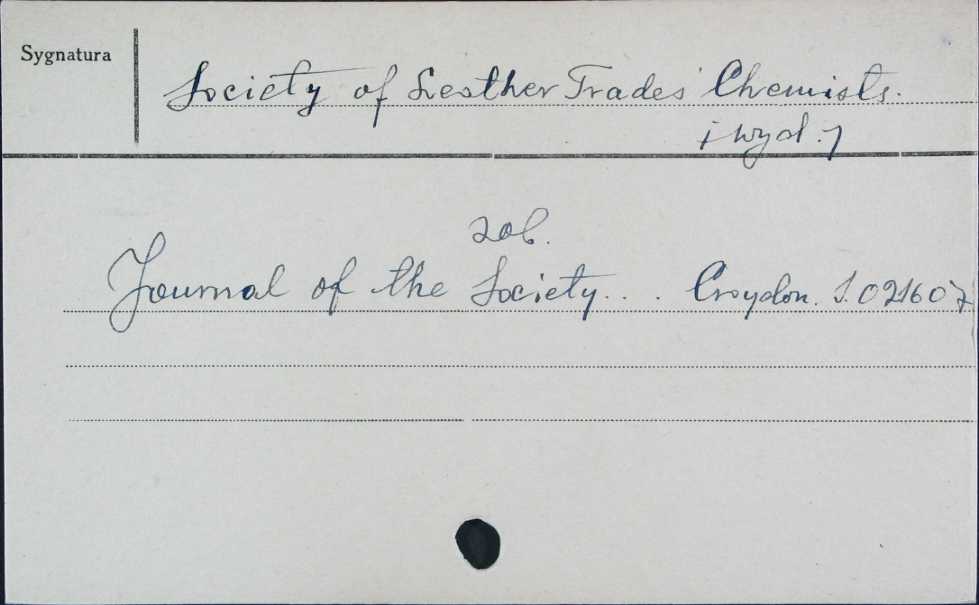 Sygnatura
Society of Leather Trades' Chemists.
[wyd.]
zob.
Journal of the Society... Croydon. S. 021607